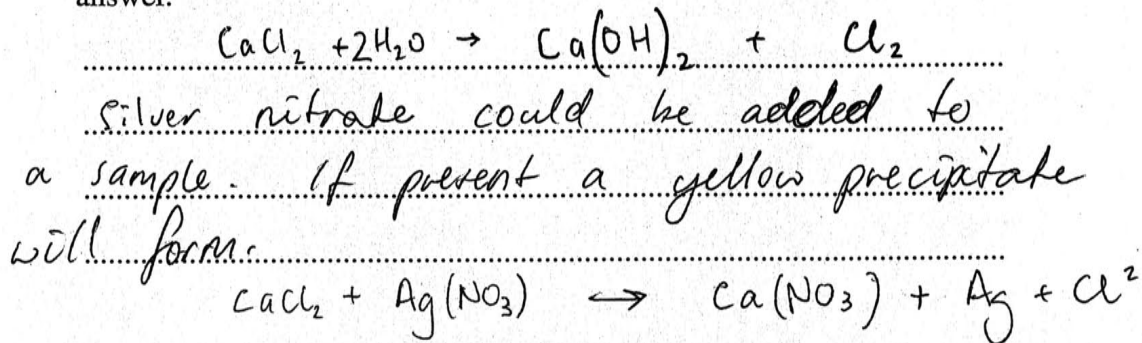 answer.
CaCl₂ +2H₂O → Ca(OH)₂ + Cl₂
silver nitrate could be added to
a sample. If present a yellow precipitate
will form.
CaCl₂ + Ag(NO₃) ↔ Ca(NO₃) + Ag + Cl²